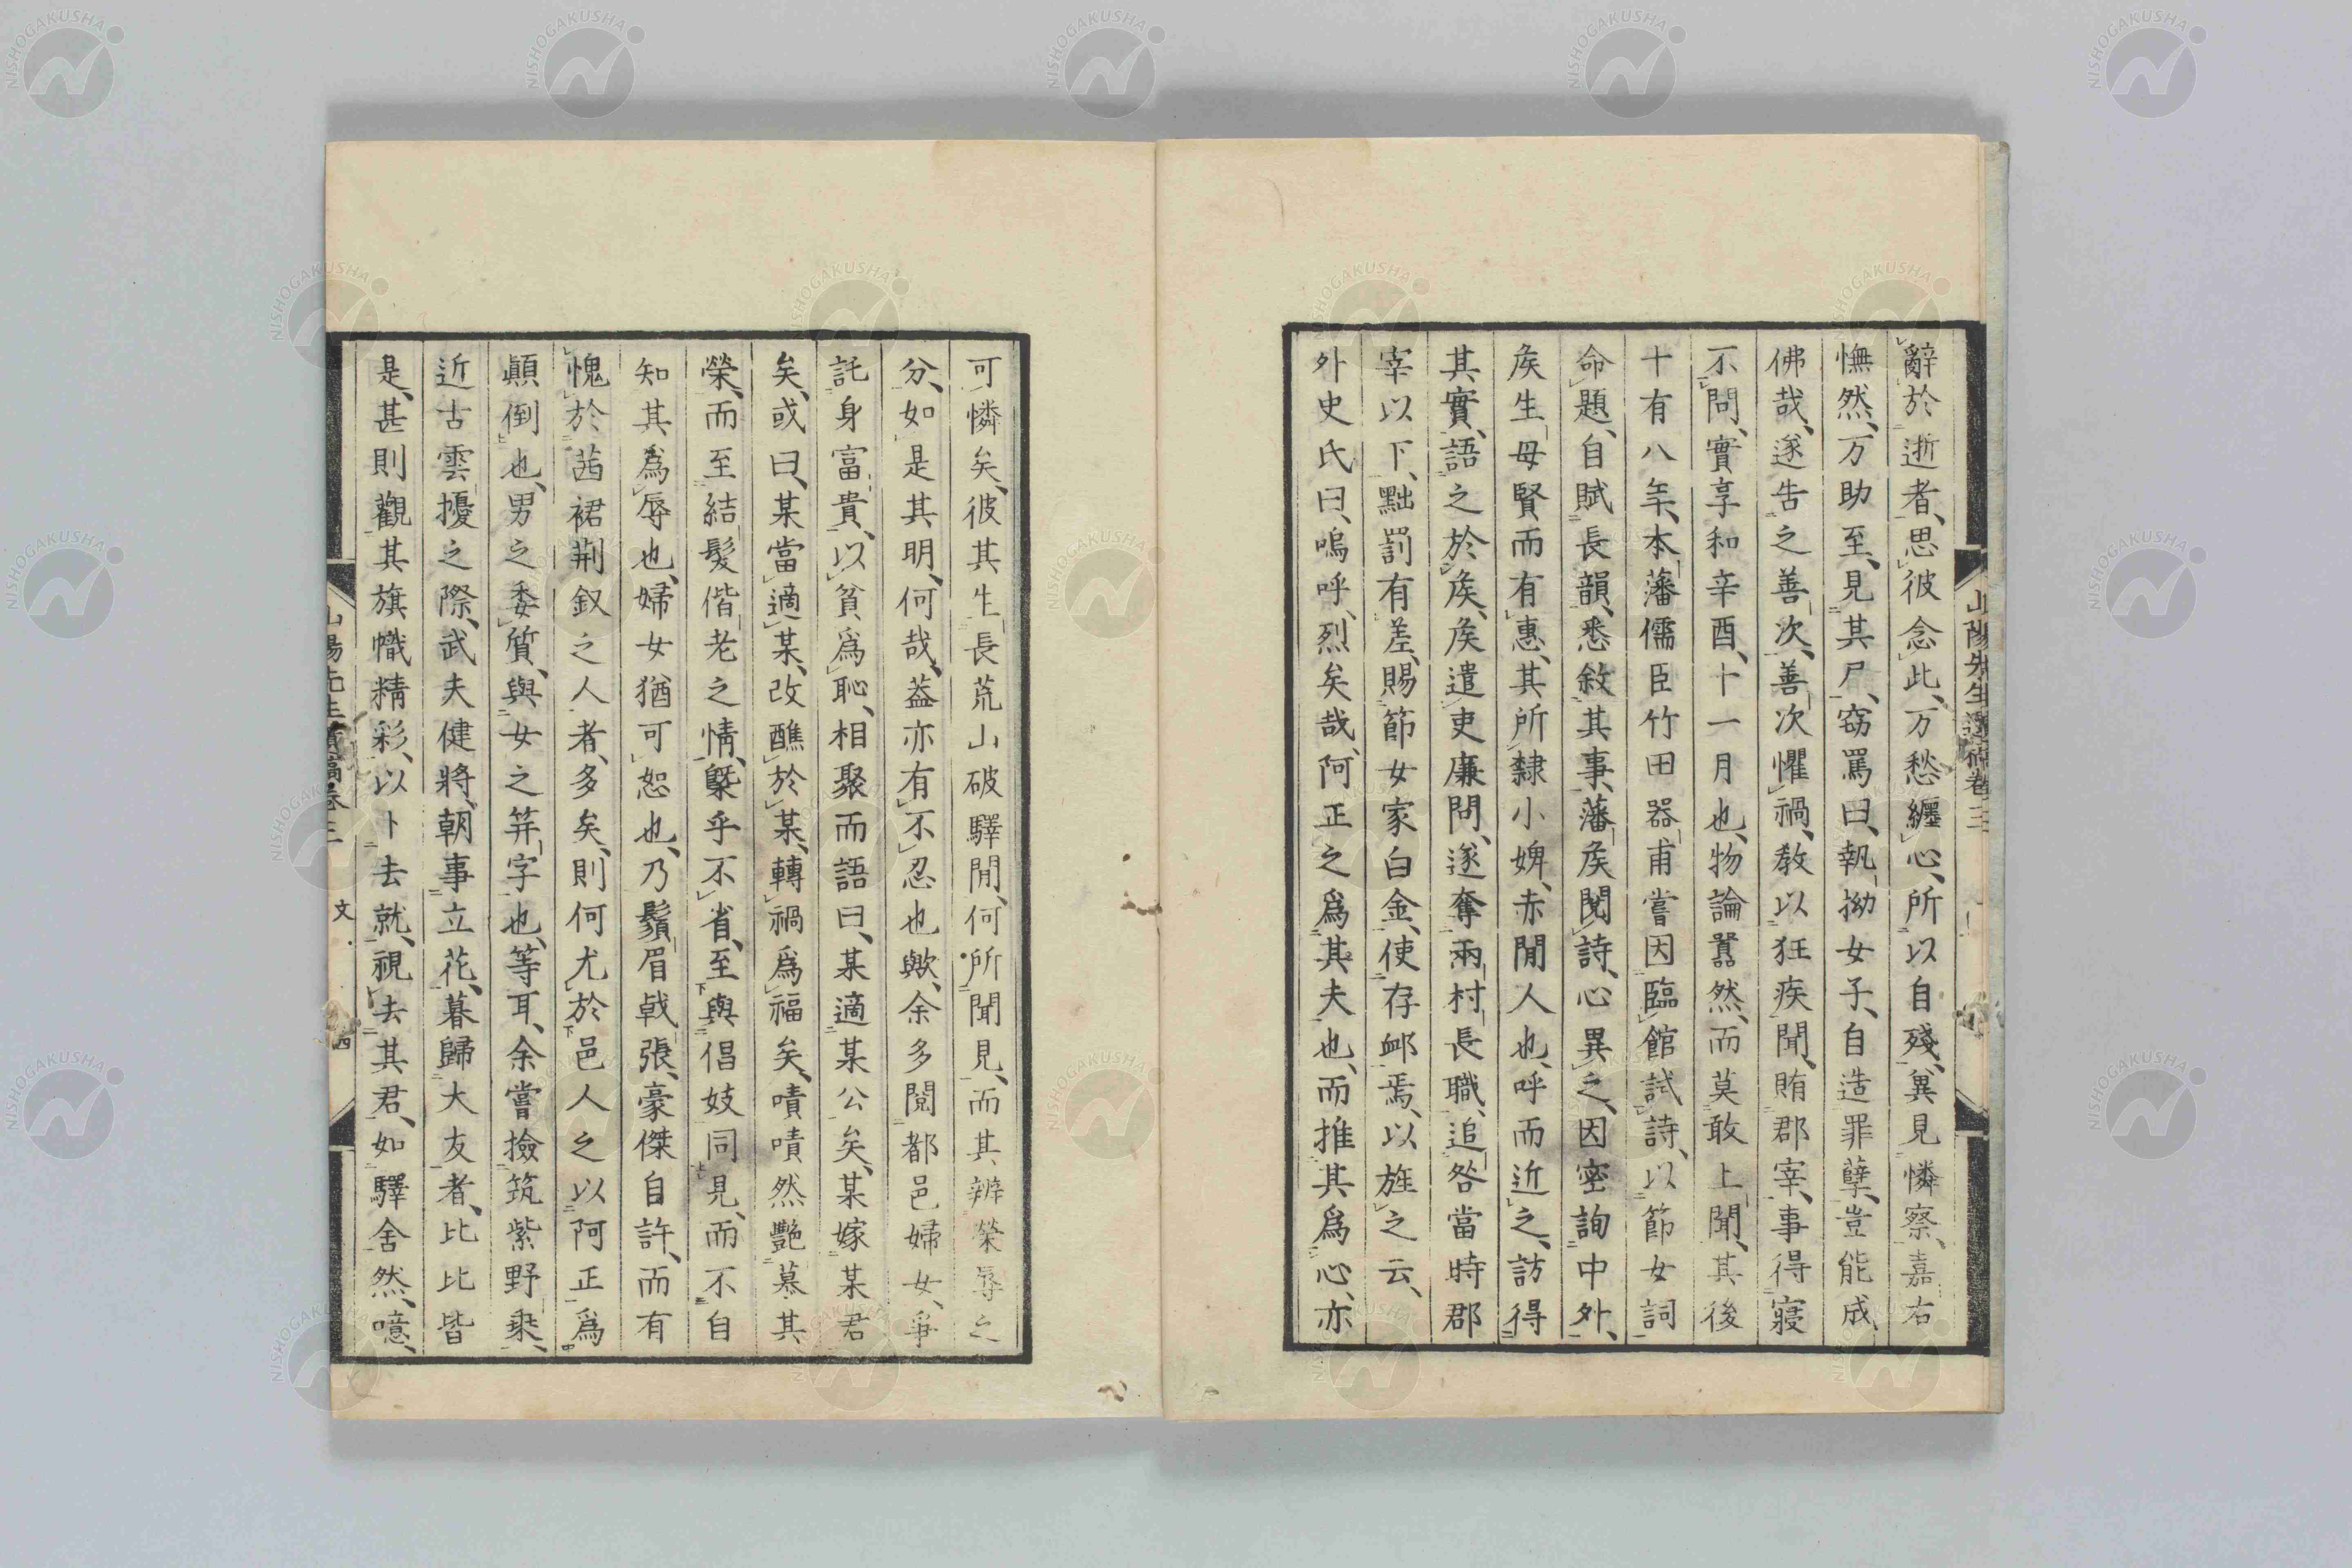 辭於逝者、思彼念此、万愁纏心、所以自殘、異見憐察、嘉右
憮然、万助至、見其尸、窃罵曰、執拗女子、自造罪孽、豈能成
佛哉、遂告之善次、善次懼禍、教以狂疾聞、賄郡宰、事得寢
不問、實享和辛酉、十一月也、物論囂然、而莫敢上聞、其後
十有八年、本藩儒臣竹田器甫嘗因臨館試詩、以節女詞
命題、自賦長韻、悉敘其事、藩矦閱詩、心異之、因密詢中外、
矦生母賢而有惠、其所隸小婢、赤間人也、呼而近之、訪得
其實、語之於矦、矦遣吏廉問、遂奪兩村長職、追咎當時郡
宰以下、黜罰有差、賜節女家白金、使存䘏焉、以旌之云、
外史氏曰、嗚呼、烈矣哉、阿正之爲其夫也、而推其爲心、亦
可憐矣、彼其生長荒山破驛間、何所聞見、而其辨榮辱之
分、如是其明、何哉、葢亦有不忍也歟、余多閱都邑婦女、爭
託身富貴、以貧爲恥、相聚而語曰、某適某公矣、某嫁某君
矣、或曰、某當適某、改醮於某、轉禍爲福矣、嘖嘖然艷慕其
榮、而至結髮偕老之情、槩乎不省、至與倡妓同見、而不自
知其爲辱也、婦女猶可恕也、乃鬚眉戟張、豪傑自許、而有
愧於茜裙荆釵之人者、多矣、則何尤於邑人之以阿正爲
顛倒也、男之委質、與女之笄字也、等耳、余嘗撿筑紫野乗、
近古雲擾之際、武夫健將、朝事立花、暮歸大友者、比比皆
是、甚則觀其旗幟精彩、以卜去就、視去其君、如驛舍然、噫、
山陽先生遺稿卷三
文